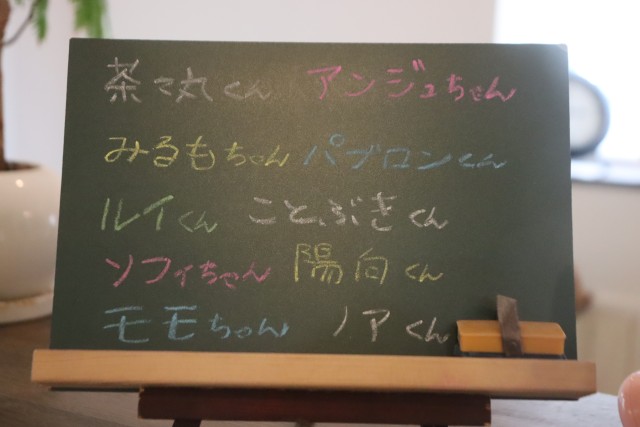 茶々丸くん アンジュちゃん
みるもちゃん パブロンくん
ルイくん ことぶきくん
ソフィちゃん 陽向くん
モモちゃん ノアくん